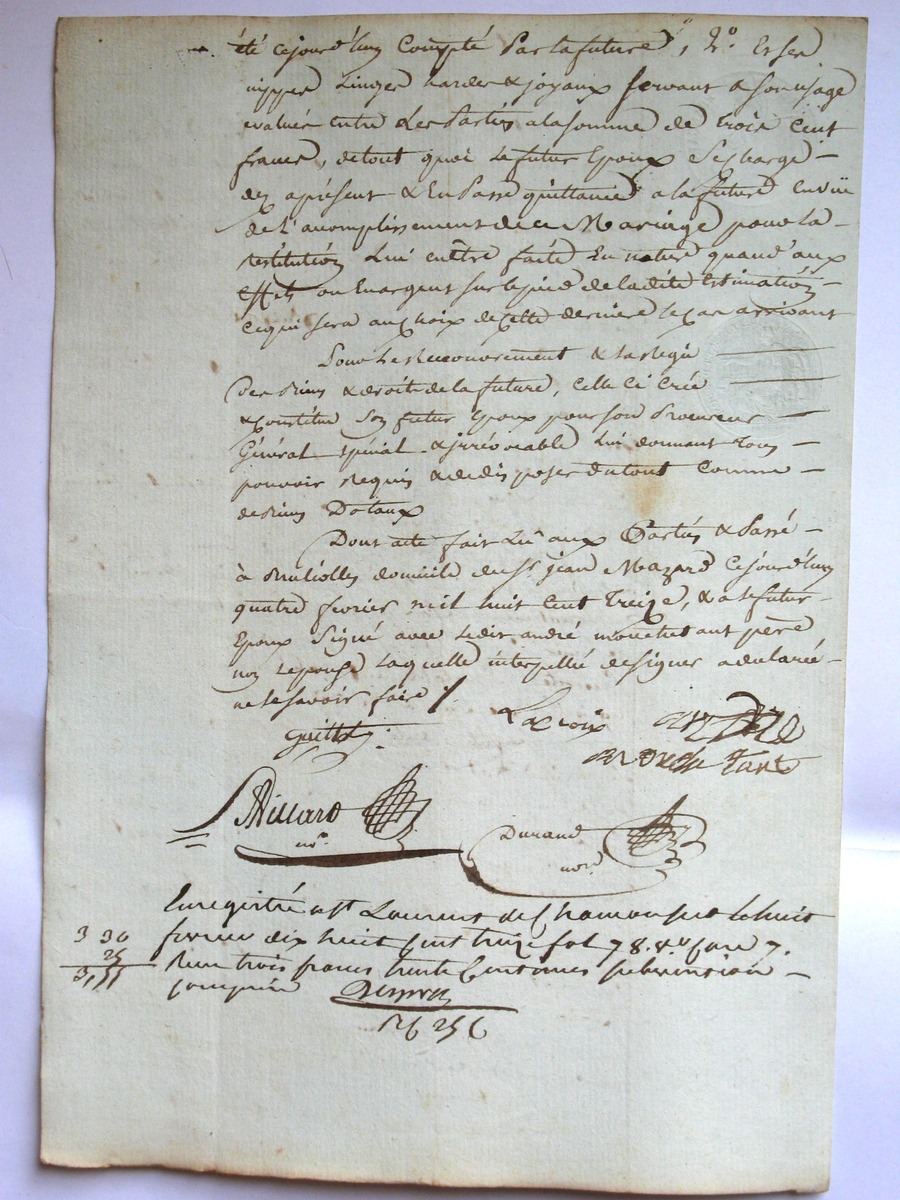 été cejourd'huy Compté Par la future, 2º. Et ses
nippes Linges hardes & joyaux servant a son usage
evalués entre Les Parties a la somme de trois Cent
francs, de tout quoi Le futur Epoux Se charge
dez aprésent & En Passe quittance a la future en vüe
de l'acomplissement de ce Mariage pour la
restitution Lui en être faite En nature quand aux
Effets ou En argent sur le pied de la dite Estimation
ce qui sera au choix de cette derniere le cas arrivant
Pour Le Recouvrement & la Regie
Des Biens & droits de la future, Celle Ci Crée
& Constitue Son futur Epoux pour Son Procureur
Général spécial & irrévocable Lui donnant tous
pouvoir Requis & de disposer du tout Comme
de Biens Dotaux
Dont acte fait Lu aux Parties & Passé
à domicile du Sr. jean Mazard Cejourd'huy
quatre fevrier mil huit Cent Treize, & a le futur
Epoux Signé avec ledit andré pere
non Lepouse Laquelle interpellée de signer a declarée
ne le savoir faire
Lacroix
no.
Durand
nore
Enregistré a St Laurent de Chamousset le huit
fevrier dix huit Cent treize fol 78. vo Case 7.
3 30
Reçu trois francs trente Centimes subvention
comprise